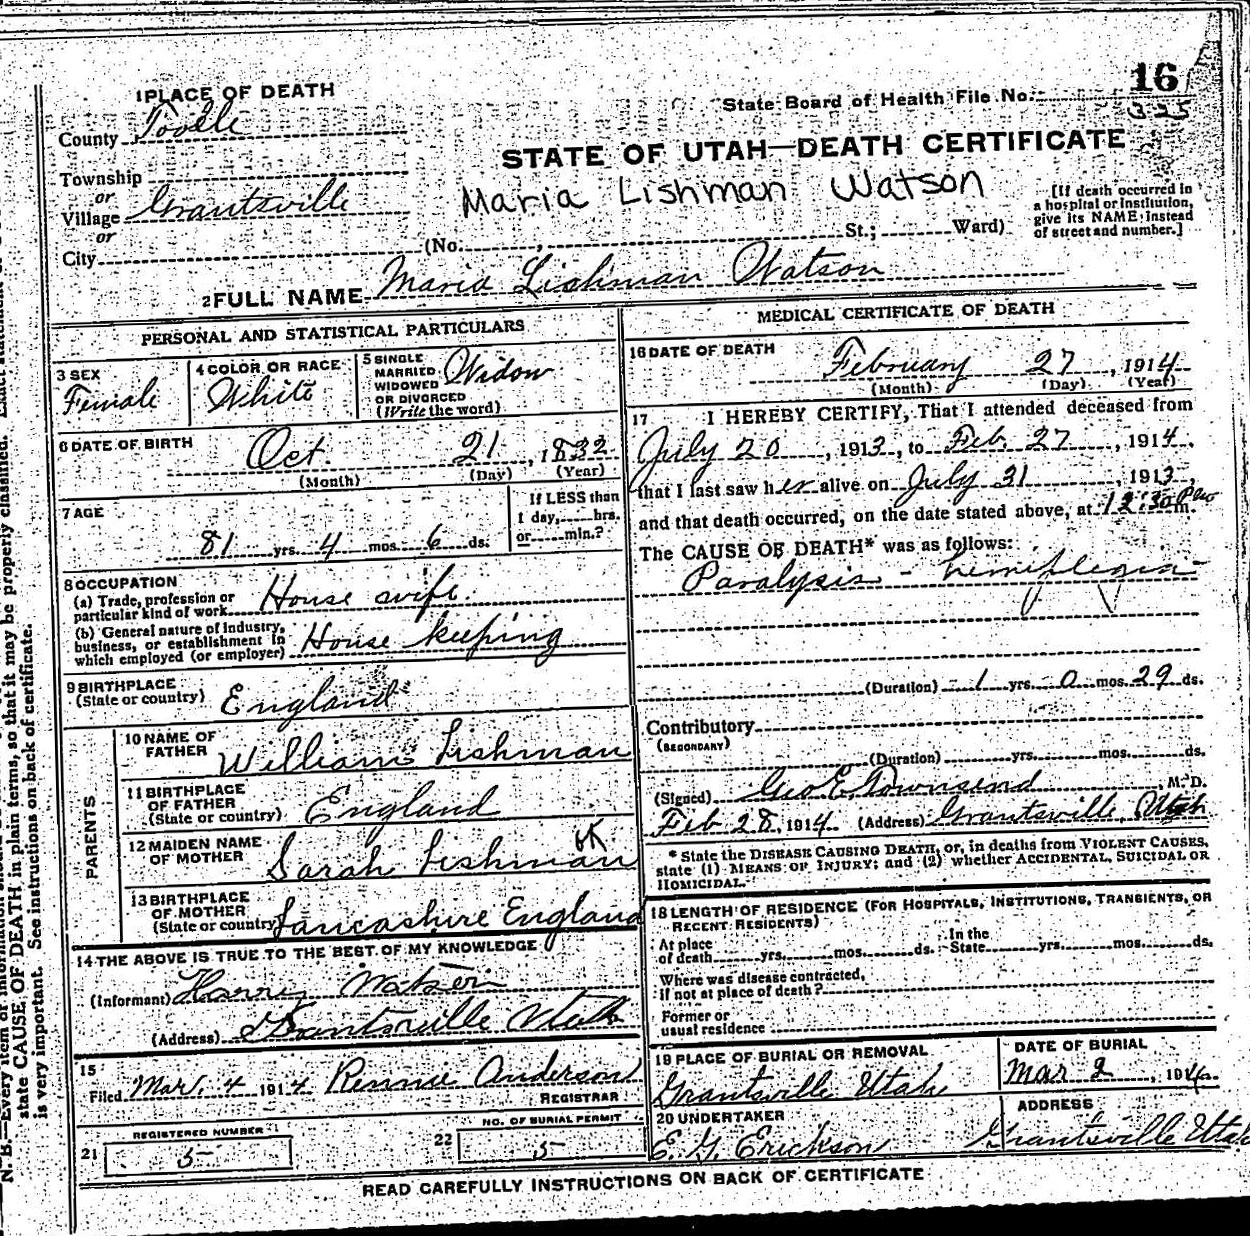 16
1 PLACE OF DEATH
State Board of Health File No.
325
County Tooele
STATE OF UTAH—DEATH CERTIFICATE
Township
or
Village Grantsville
or
City
Maria Lishman Watson
[If death occurred in
a hospital or institution,
give its NAME instead
of street and number.]
(No. , St.; Ward)
2 FULL NAME Maria Lishman Watson
PERSONAL AND STATISTICAL PARTICULARS
3 SEX
Female
4 COLOR OR RACE
White
5 SINGLE
MARRIED
WIDOWED
OR DIVORCED
(Write the word)
Widow
6 DATE OF BIRTH
Oct. 21, 1832
(Month) (Day) (Year)
7 AGE
81 yrs. 4 mos. 6 ds.
If LESS than
1 day, hrs.
or min.?
8 OCCUPATION
(a) Trade, profession or
particular kind of work House wife.
(b) General nature of industry,
business, or establishment in
which employed (or employer) House keeping
9 BIRTHPLACE
(State or country) England
PARENTS
10 NAME OF
FATHER William Lishman
11 BIRTHPLACE
OF FATHER
(State or country) England
12 MAIDEN NAME
OF MOTHER Sarah Lishman
13 BIRTHPLACE
OF MOTHER
(State or country) Lancashire England
14 THE ABOVE IS TRUE TO THE BEST OF MY KNOWLEDGE
(Informant) Harry Watson
(Address) Grantsville Utah
15
Filed Mar. 4 1914 Rennie Anderson
REGISTRAR
REGISTERED NUMBER
21 5
NO. OF BURIAL PERMIT
22 5
MEDICAL CERTIFICATE OF DEATH
16 DATE OF DEATH
February 27, 1914
(Month) (Day) (Year)
17 I HEREBY CERTIFY, That I attended deceased from
July 20, 1913, to Feb. 27, 1914,
that I last saw her alive on July 31, 1913,
and that death occurred, on the date stated above, at 12:30 Pm m.
The CAUSE OF DEATH* was as follows:
Paralysis - hemiplegia
(Duration) 1 yrs. 0 mos. 29 ds.
Contributory
(SECONDARY)
(Duration) yrs. mos. ds.
(Signed) Geo E. Townsend, M.D.
Feb 28, 1914 (Address) Grantsville, Utah
* State the DISEASE CAUSING DEATH, or, in deaths from VIOLENT CAUSES,
state (1) MEANS OF INJURY; and (2) whether ACCIDENTAL, SUICIDAL OR
HOMICIDAL.
18 LENGTH OF RESIDENCE (FOR HOSPITALS, INSTITUTIONS, TRANSIENTS, OR
RECENT RESIDENTS)
At place
of death yrs. mos. ds.
In the
State yrs. mos. ds.
Where was disease contracted,
if not at place of death?
Former or
usual residence
19 PLACE OF BURIAL OR REMOVAL
Grantsville Utah
DATE OF BURIAL
Mar 2, 1914
20 UNDERTAKER
E. G. Erickson
ADDRESS
Grantsville Utah
READ CAREFULLY INSTRUCTIONS ON BACK OF CERTIFICATE
N. B.—Every item of information
state CAUSE OF DEATH in plain terms, so that it may be properly classified. Exact statement
is very important. See instructions on back of certificate.